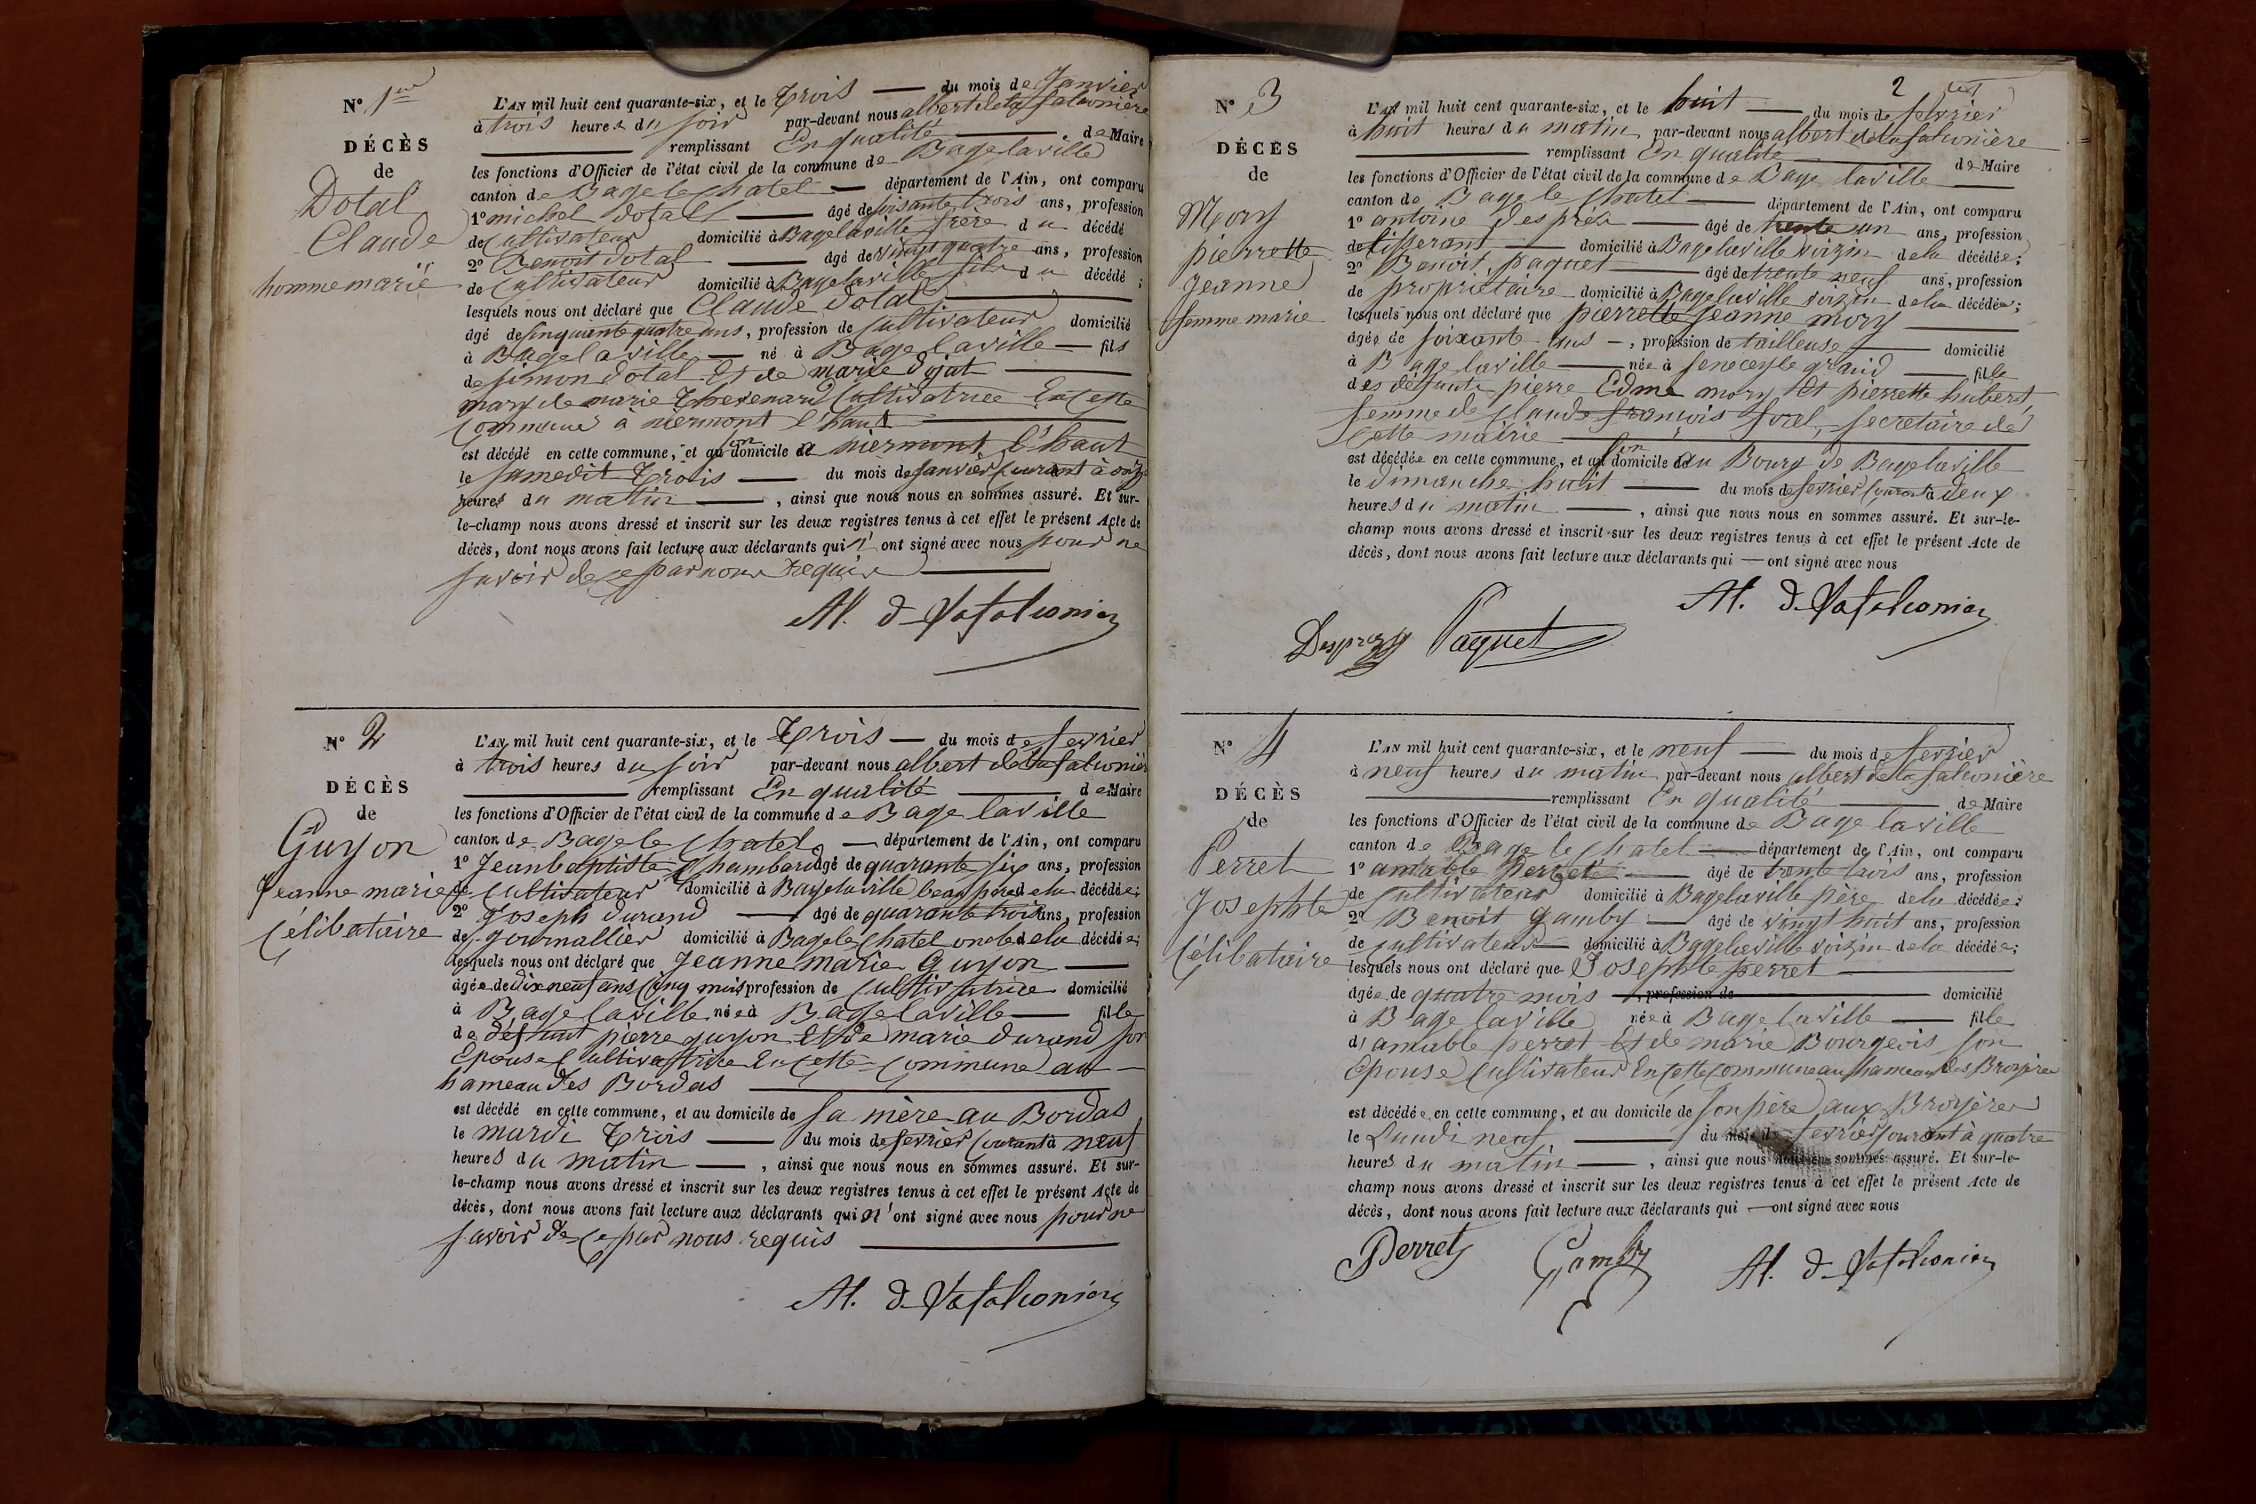 N° 1er
DÉCÈS
de
Dotal
Claude
homme marié
L'AN mil huit cent quarante-six, et le trois du mois de Janvier
à trois heures du soir par-devant nous albert dela falconière
remplissant En qualité de Maire
les fonctions d'Officier de l'état civil de la commune de Bage laville
canton de Bage le Chatel département de l'Ain, ont comparu
1° michel dotal âgé de soisante trois ans, profession
de Cultivateur domicilié à Bage laville frère du décédé
2° Benoit dotal âgé de vingt quatre ans, profession
de Cultivateur domicilié à Bage laville fils du décédé ;
lesquels nous ont déclaré que Claude dotal
âgé de Cinquante quatre ans, profession de Cultivateur domicilié
à Bage laville né à Bage laville fils
de simon dotal Et de marie dijat
mary de marie thevenard Cultivatrice En Cette
Commune à niermont l'haut
est décédé en cette commune, et au son domicile à niermont l'haut
le samedit trois du mois de Janvier Courant à onze
heures du matin, ainsi que nous nous en sommes assuré. Et sur-
le-champ nous avons dressé et inscrit sur les deux registres tenus à cet effet le présent Acte de
décès, dont nous avons fait lecture aux déclarants qui n'ont signé avec nous pour ne
savoir de ce par nous requis
Al. d Lafalconière
N° 2
DÉCÈS
de
Guyon
Jeanne marie
Célibataire
L'AN mil huit cent quarante-six, et le trois du mois de fevrier
à trois heures du soir par-devant nous albert dela falconière
remplissant En qualité de Maire
les fonctions d'Officier de l'état civil de la commune de Bage laville
canton de Bage le Chatel département de l'Ain, ont comparu
1° Jean baptiste Chambard âgé de quarante six ans, profession
de Cultivateur domicilié à Bage laville beau père dela décédée;
2° Joseph durand âgé de quarante trois ans, profession
de journallier domicilié à Bage le Chatel oncle dela décédée;
lesquels nous ont déclaré que Jeanne marie Guyon
âgée de dix neuf ans Cinq mois profession de Cultivatrice domicilié
à Bage laville née à Bage laville fille
de défunt pierre guyon Et de marie durand son
Epouse Cultivatrice En Cette Commune au
hameau des Bordas
est décédé en cette commune, et au domicile de sa mère au Bordas
le mardi trois du mois de fevrier Courant à neuf
heures du matin, ainsi que nous nous en sommes assuré. Et sur-
le-champ nous avons dressé et inscrit sur les deux registres tenus à cet effet le présent Acte de
décès, dont nous avons fait lecture aux déclarants qui n'ont signé avec nous pour ne
savoir de Ce par nous requis
Al. d Lafalconière
2
N° 3
DÉCÈS
de
Mory
pierrette
Jeanne
femme marie
L'AN mil huit cent quarante-six, et le huit du mois de fevrier
à huit heures du matin par-devant nous albert dela falconière
remplissant En qualité de Maire
les fonctions d'Officier de l'état civil de la commune de Bage laville
canton de Bage le Chatel département de l'Ain, ont comparu
1° antoine després âgé de trente un ans, profession
de tisserant domicilié à Bage laville voizin dela décédée;
2° Benoit paquet âgé de trente neuf ans, profession
de propriétaire domicilié à Bage laville voizin dela décédée;
lesquels nous ont déclaré que pierrette Jeanne mory
âgée de soixante ans, profession de tailleuse domicilié
à Bage laville née à senecey le grand fille
des défunts pierre Edme mory Et pierrette hubert
femme de Claude françois forel, secretaire de
Cette mairie
est décédée en cette commune, et au son domicile au Bourg de Bage laville
le dimanche huit du mois de fevrier Courant à deux
heures du matin, ainsi que nous nous en sommes assuré. Et sur-le-
champ nous avons dressé et inscrit sur les deux registres tenus à cet effet le présent Acte de
décès, dont nous avons fait lecture aux déclarants qui ont signé avec nous
Al. d Lafalconière
Desprez Paquet
N° 4
DÉCÈS
de
Perret
Josephte
Célibataire
L'AN mil huit cent quarante-six, et le neuf du mois de fevrier
à neuf heures du matin par-devant nous albert dela falconière
remplissant En qualité de Maire
les fonctions d'Officier de l'état civil de la commune de Bage laville
canton de Bage le Chatel département de l'Ain, ont comparu
1° amable perret âgé de trente trois ans, profession
de Cultivateur domicilié à Bage laville père dela décédée;
2° Benoit gamby âgé de vingt huit ans, profession
de Cultivateur domicilié à Bage laville voizin dela décédée;
lesquels nous ont déclaré que Josephte perret
âgée de quatre mois, profession de domicilié
à Bage laville née à Bage laville fille
d'amable perret Et de marie Bourgeois son
Epouse Cultivateur En Cette Commune au hameau des Broyères
est décédée en cette commune, et au domicile de son père aux Broyères
le Lundi neuf du mois de fevrier Courant à quatre
heures du matin, ainsi que nous nous en sommes assuré. Et sur-le-
champ nous avons dressé et inscrit sur les deux registres tenus à cet effet le présent Acte de
décès, dont nous avons fait lecture aux déclarants qui ont signé avec nous
Perret Gamby Al. d Lafalconière